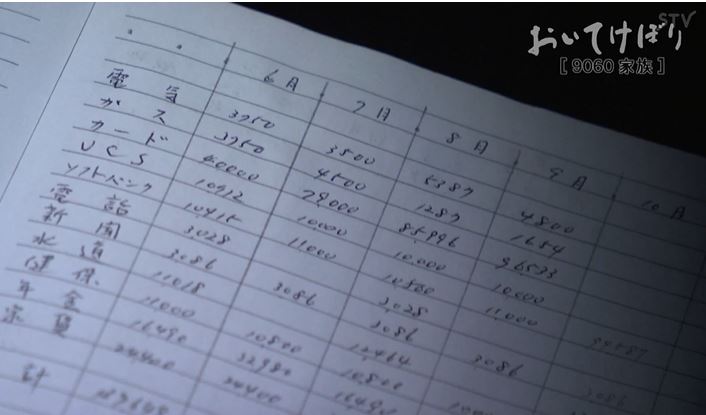 STV
おいてけぼり
[ 9060 家族 ]
6月 7月 8月 9月 10月
電気 3950 3500 5387 4800
ガス 3950 4500 1287 1654
カード 40000 29000 85996 96533
UCS 10912 10000 10,000 10,000
ソフトバンク 10415 11000 10500 11,000
電話 3028 3028
新聞 3086 3086 3086 3086
水道 11018 12464
健保 11000 10800 10800
年金 16490 32980 16490
家賃 24400 24400
計